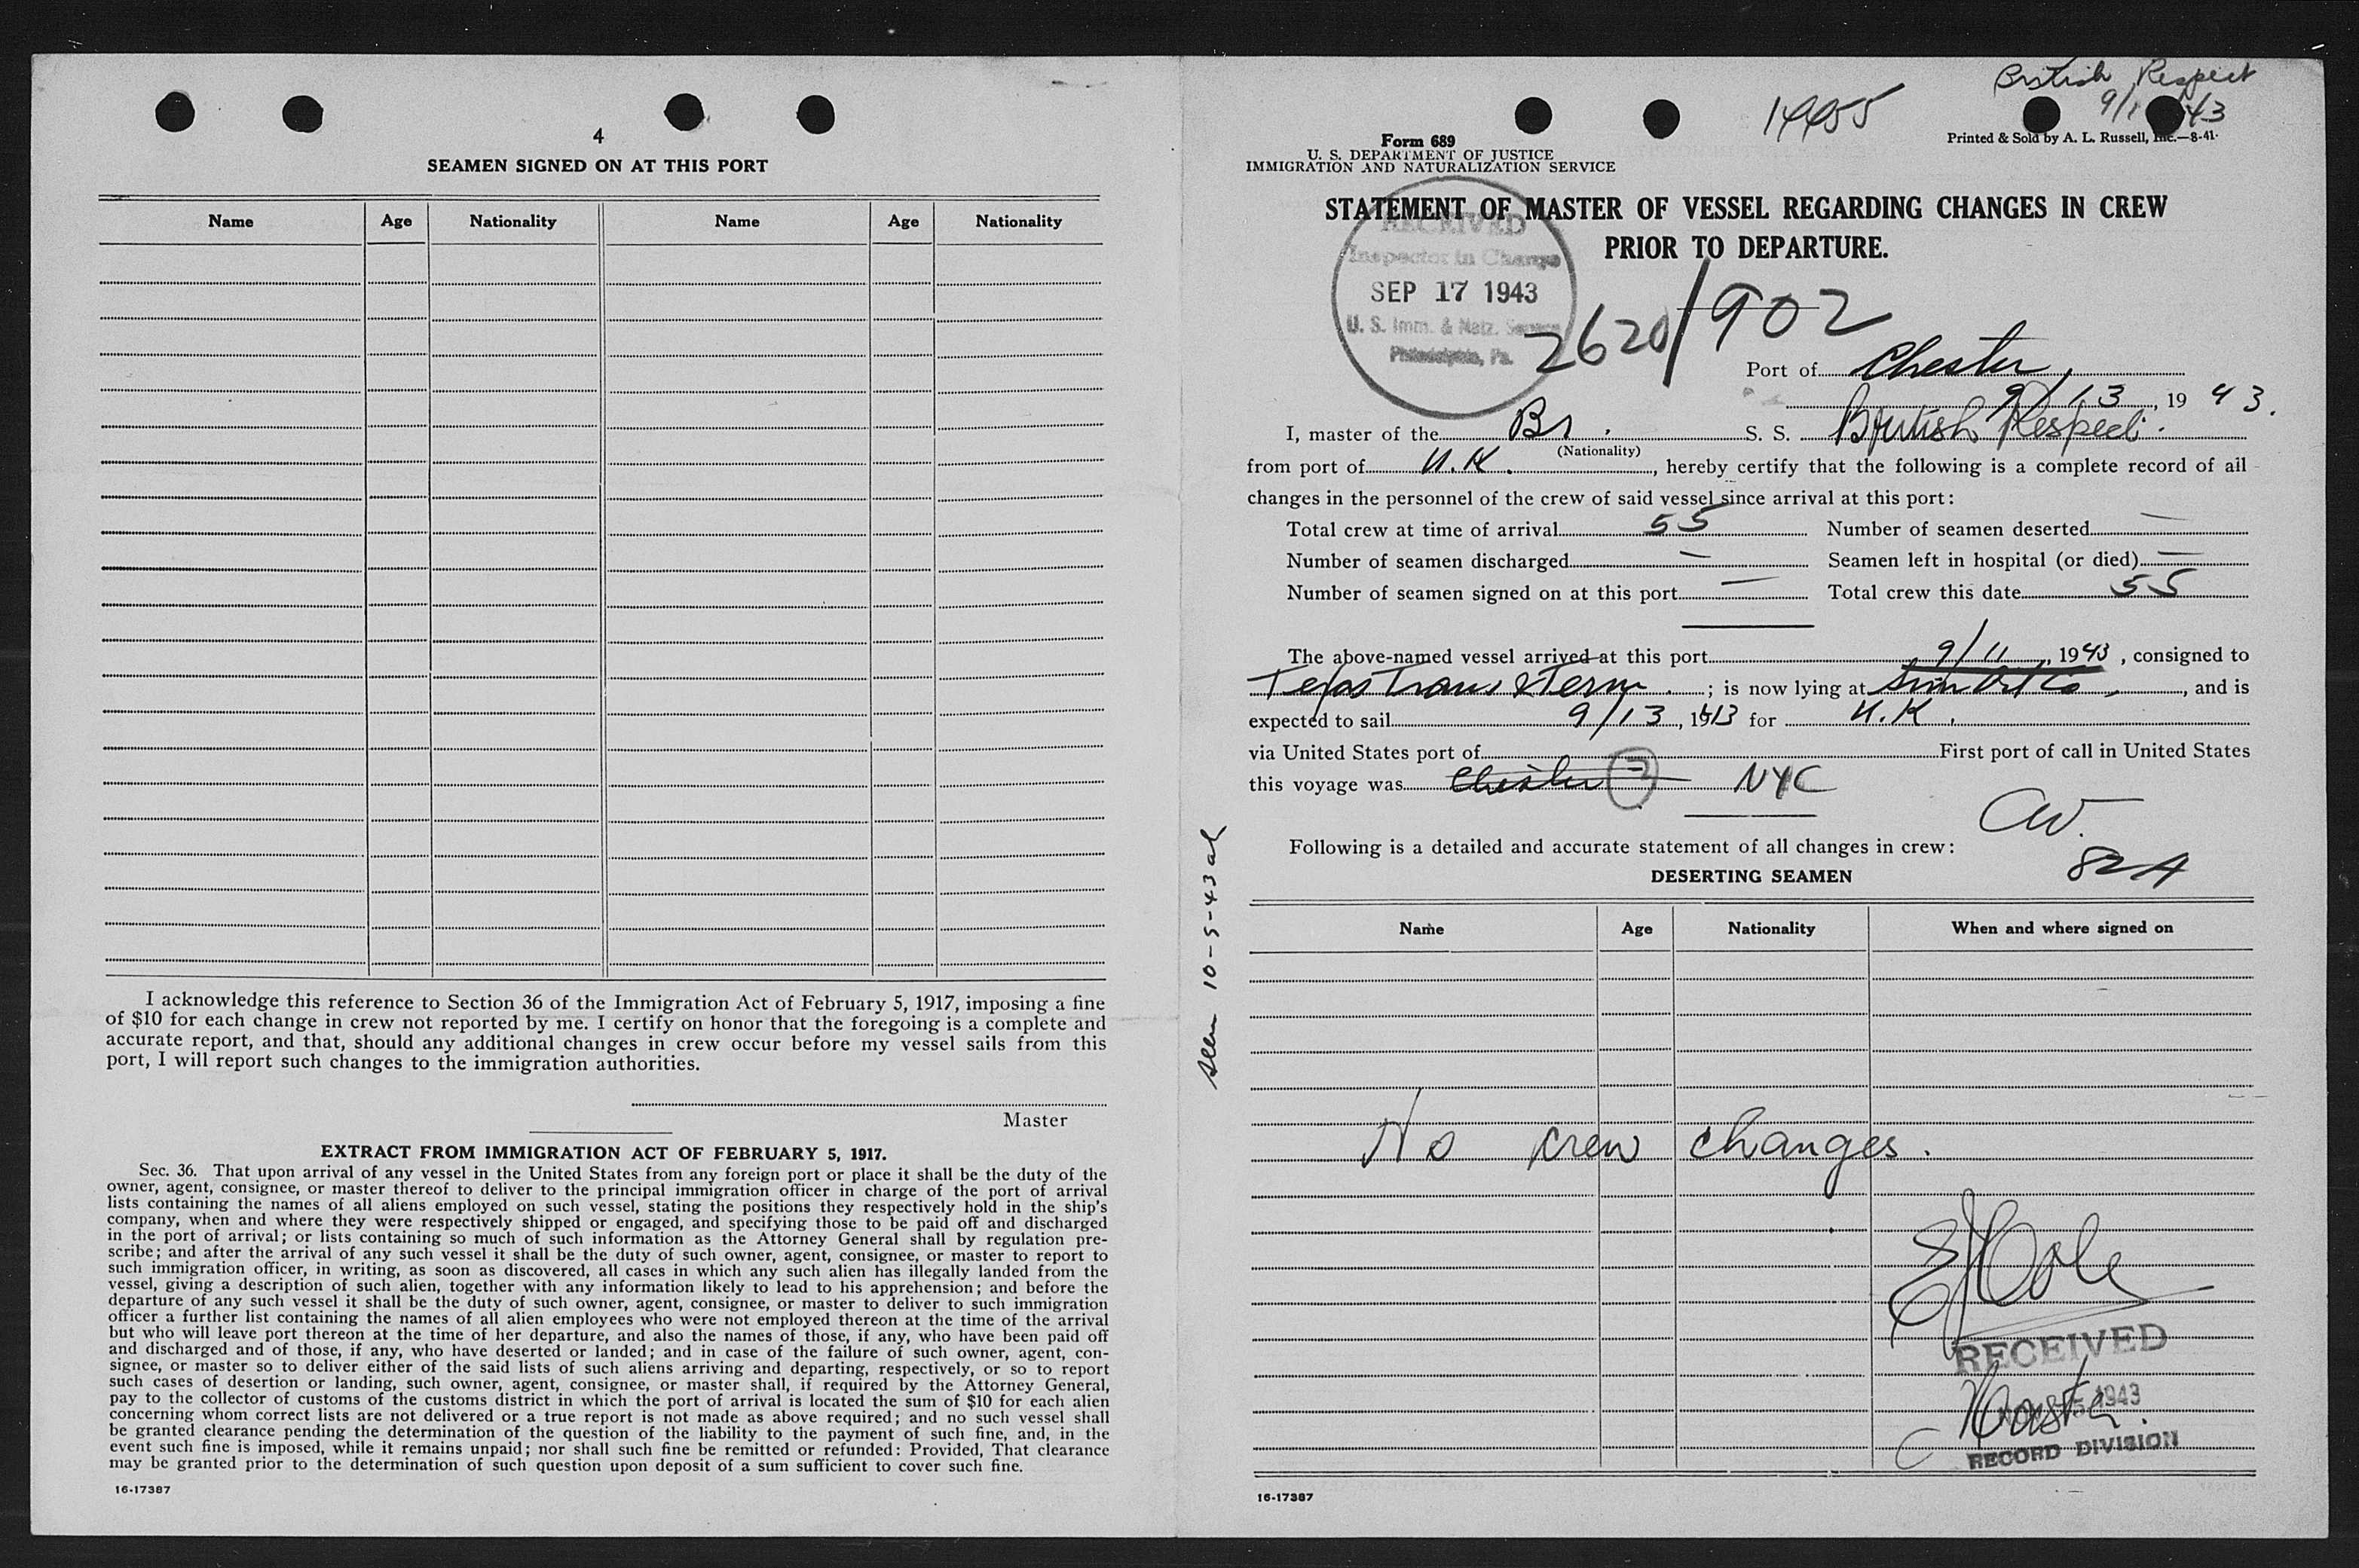 4
SEAMEN SIGNED ON AT THIS PORT
Name Age Nationality Name Age Nationality
I acknowledge this reference to Section 36 of the Immigration Act of February 5, 1917, imposing a fine
of $10 for each change in crew not reported by me. I certify on honor that the foregoing is a complete and
accurate report, and that, should any additional changes in crew occur before my vessel sails from this
port, I will report such changes to the immigration authorities.
Master
EXTRACT FROM IMMIGRATION ACT OF FEBRUARY 5, 1917.
Sec. 36. That upon arrival of any vessel in the United States from any foreign port or place it shall be the duty of the
owner, agent, consignee, or master thereof to deliver to the principal immigration officer in charge of the port of arrival
lists containing the names of all aliens employed on such vessel, stating the positions they respectively hold in the ship's
company, when and where they were respectively shipped or engaged, and specifying those to be paid off and discharged
in the port of arrival; or lists containing so much of such information as the Attorney General shall by regulation pre-
scribe; and after the arrival of any such vessel it shall be the duty of such owner, agent, consignee, or master to report to
such immigration officer, in writing, as soon as discovered, all cases in which any such alien has illegally landed from the
vessel, giving a description of such alien, together with any information likely to lead to his apprehension; and before the
departure of any such vessel it shall be the duty of such owner, agent, consignee, or master to deliver to such immigration
officer a further list containing the names of all alien employees who were not employed thereon at the time of the arrival
but who will leave port thereon at the time of her departure, and also the names of those, if any, who have been paid off
and discharged and of those, if any, who have deserted or landed; and in case of the failure of such owner, agent, con-
signee, or master so to deliver either of the said lists of such aliens arriving and departing, respectively, or so to report
such cases of desertion or landing, such owner, agent, consignee, or master shall, if required by the Attorney General,
pay to the collector of customs of the customs district in which the port of arrival is located the sum of $10 for each alien
concerning whom correct lists are not delivered or a true report is not made as above required; and no such vessel shall
be granted clearance pending the determination of the question of the liability to the payment of such fine, and, in the
event such fine is imposed, while it remains unpaid; nor shall such fine be remitted or refunded: Provided, That clearance
may be granted prior to the determination of such question upon deposit of a sum sufficient to cover such fine.
16-17387
British Respect
9/1 43
14455
Form 689
Printed & Sold by A. L. Russell, Inc.—8-41
U. S. DEPARTMENT OF JUSTICE
IMMIGRATION AND NATURALIZATION SERVICE
STATEMENT OF MASTER OF VESSEL REGARDING CHANGES IN CREW
PRIOR TO DEPARTURE.
RECEIVED
Inspector in Charge
SEP 17 1943
U. S. Imm. & Natz. Service
Philadelphia, Pa.
2620/902
Port of Chester,
9/13, 1943.
I, master of the Br. S. S. British Respect.
(Nationality)
from port of U.K., hereby certify that the following is a complete record of all
changes in the personnel of the crew of said vessel since arrival at this port:
Total crew at time of arrival 55 Number of seamen deserted —
Number of seamen discharged — Seamen left in hospital (or died) —
Number of seamen signed on at this port — Total crew this date 55
The above-named vessel arrived at this port 9/11, 1943, consigned to
Texas Trans & Term.; is now lying at Sun Oil Co, and is
expected to sail 9/13, 1943 for U.K.
via United States port of First port of call in United States
this voyage was Chester NYC
82A
Following is a detailed and accurate statement of all changes in crew:
DESERTING SEAMEN
Name Age Nationality When and where signed on
No crew changes.
Master.
RECEIVED
1943
RECORD DIVISION
16-17387
10-5-43